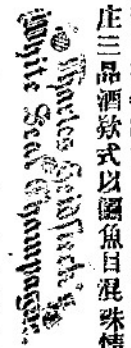 庄三品酒欵式以鱷魚目混珠情
Charles Heidsieck's
White Seal Champagne